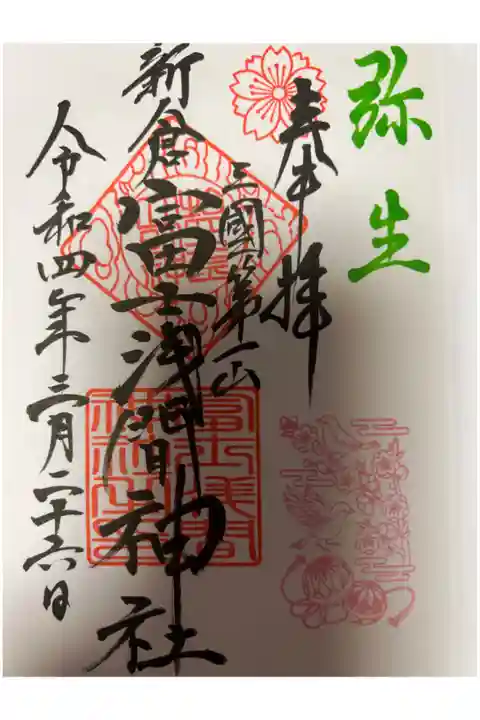 弥生
奉拝
三國第一山
新倉富士浅間神社
令和四年三月二十六日